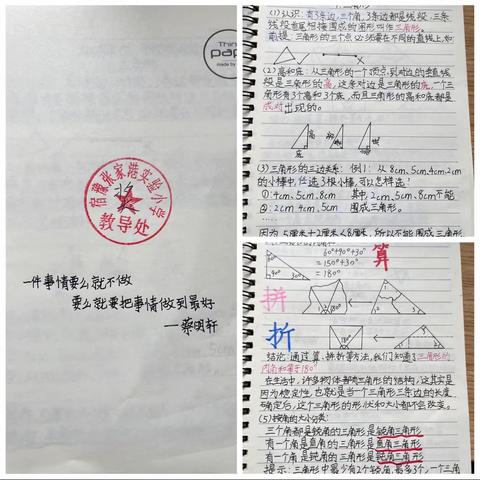 Thin
pap
made by
宿豫张家港实验小学
奖
教导处
一件事情要么就不做
要么就要把事情做到最好
—蔡明轩
(1)认识:有3条边,三个角,3条边都是线段,三条
线段首尾相接围成的图形叫作三角形。
前提:三角形的三个点必须要在不同的直线上,如
(2)高和底:从三角形的一个顶点到对边的垂直线
段是三角形的高,这条对边是三角形的底,一个三
角形有3个高和3个底,而且三角形的高和底都是
成对出现的。
高
底
(3)三角形的三边关系:例1:从8cm、5cm、4cm、2cm
的小棒中,任选3根小棒,可以怎样选?
①4cm、5cm、8cm 其中,2cm、5cm、8cm不能
②2cm、4cm、5cm 围成三角形。
因为5厘米+2厘米<8厘米,所以不能围成三角形
60°+90°+30°
=150°+30°
=180°
算
90°
30°
拼
180°
折
结论:通过算、拼、折等方法,我们知道了三角形的
内角和等于180°
在生活中,许多物体都有三角形的结构,这其实是
因为稳定性,也就是当一个三角形三条边的长度
确定后,这个三角形的形状和大小都不会改变。
(5)按角的大小分类:
三个角都是锐角的三角形是锐角三角形
有一个角是直角的三角形是直角三角形
有一个角是钝角的三角形是钝角三角形
提示:三角形中最少有2个锐角,最多3个,一个三角